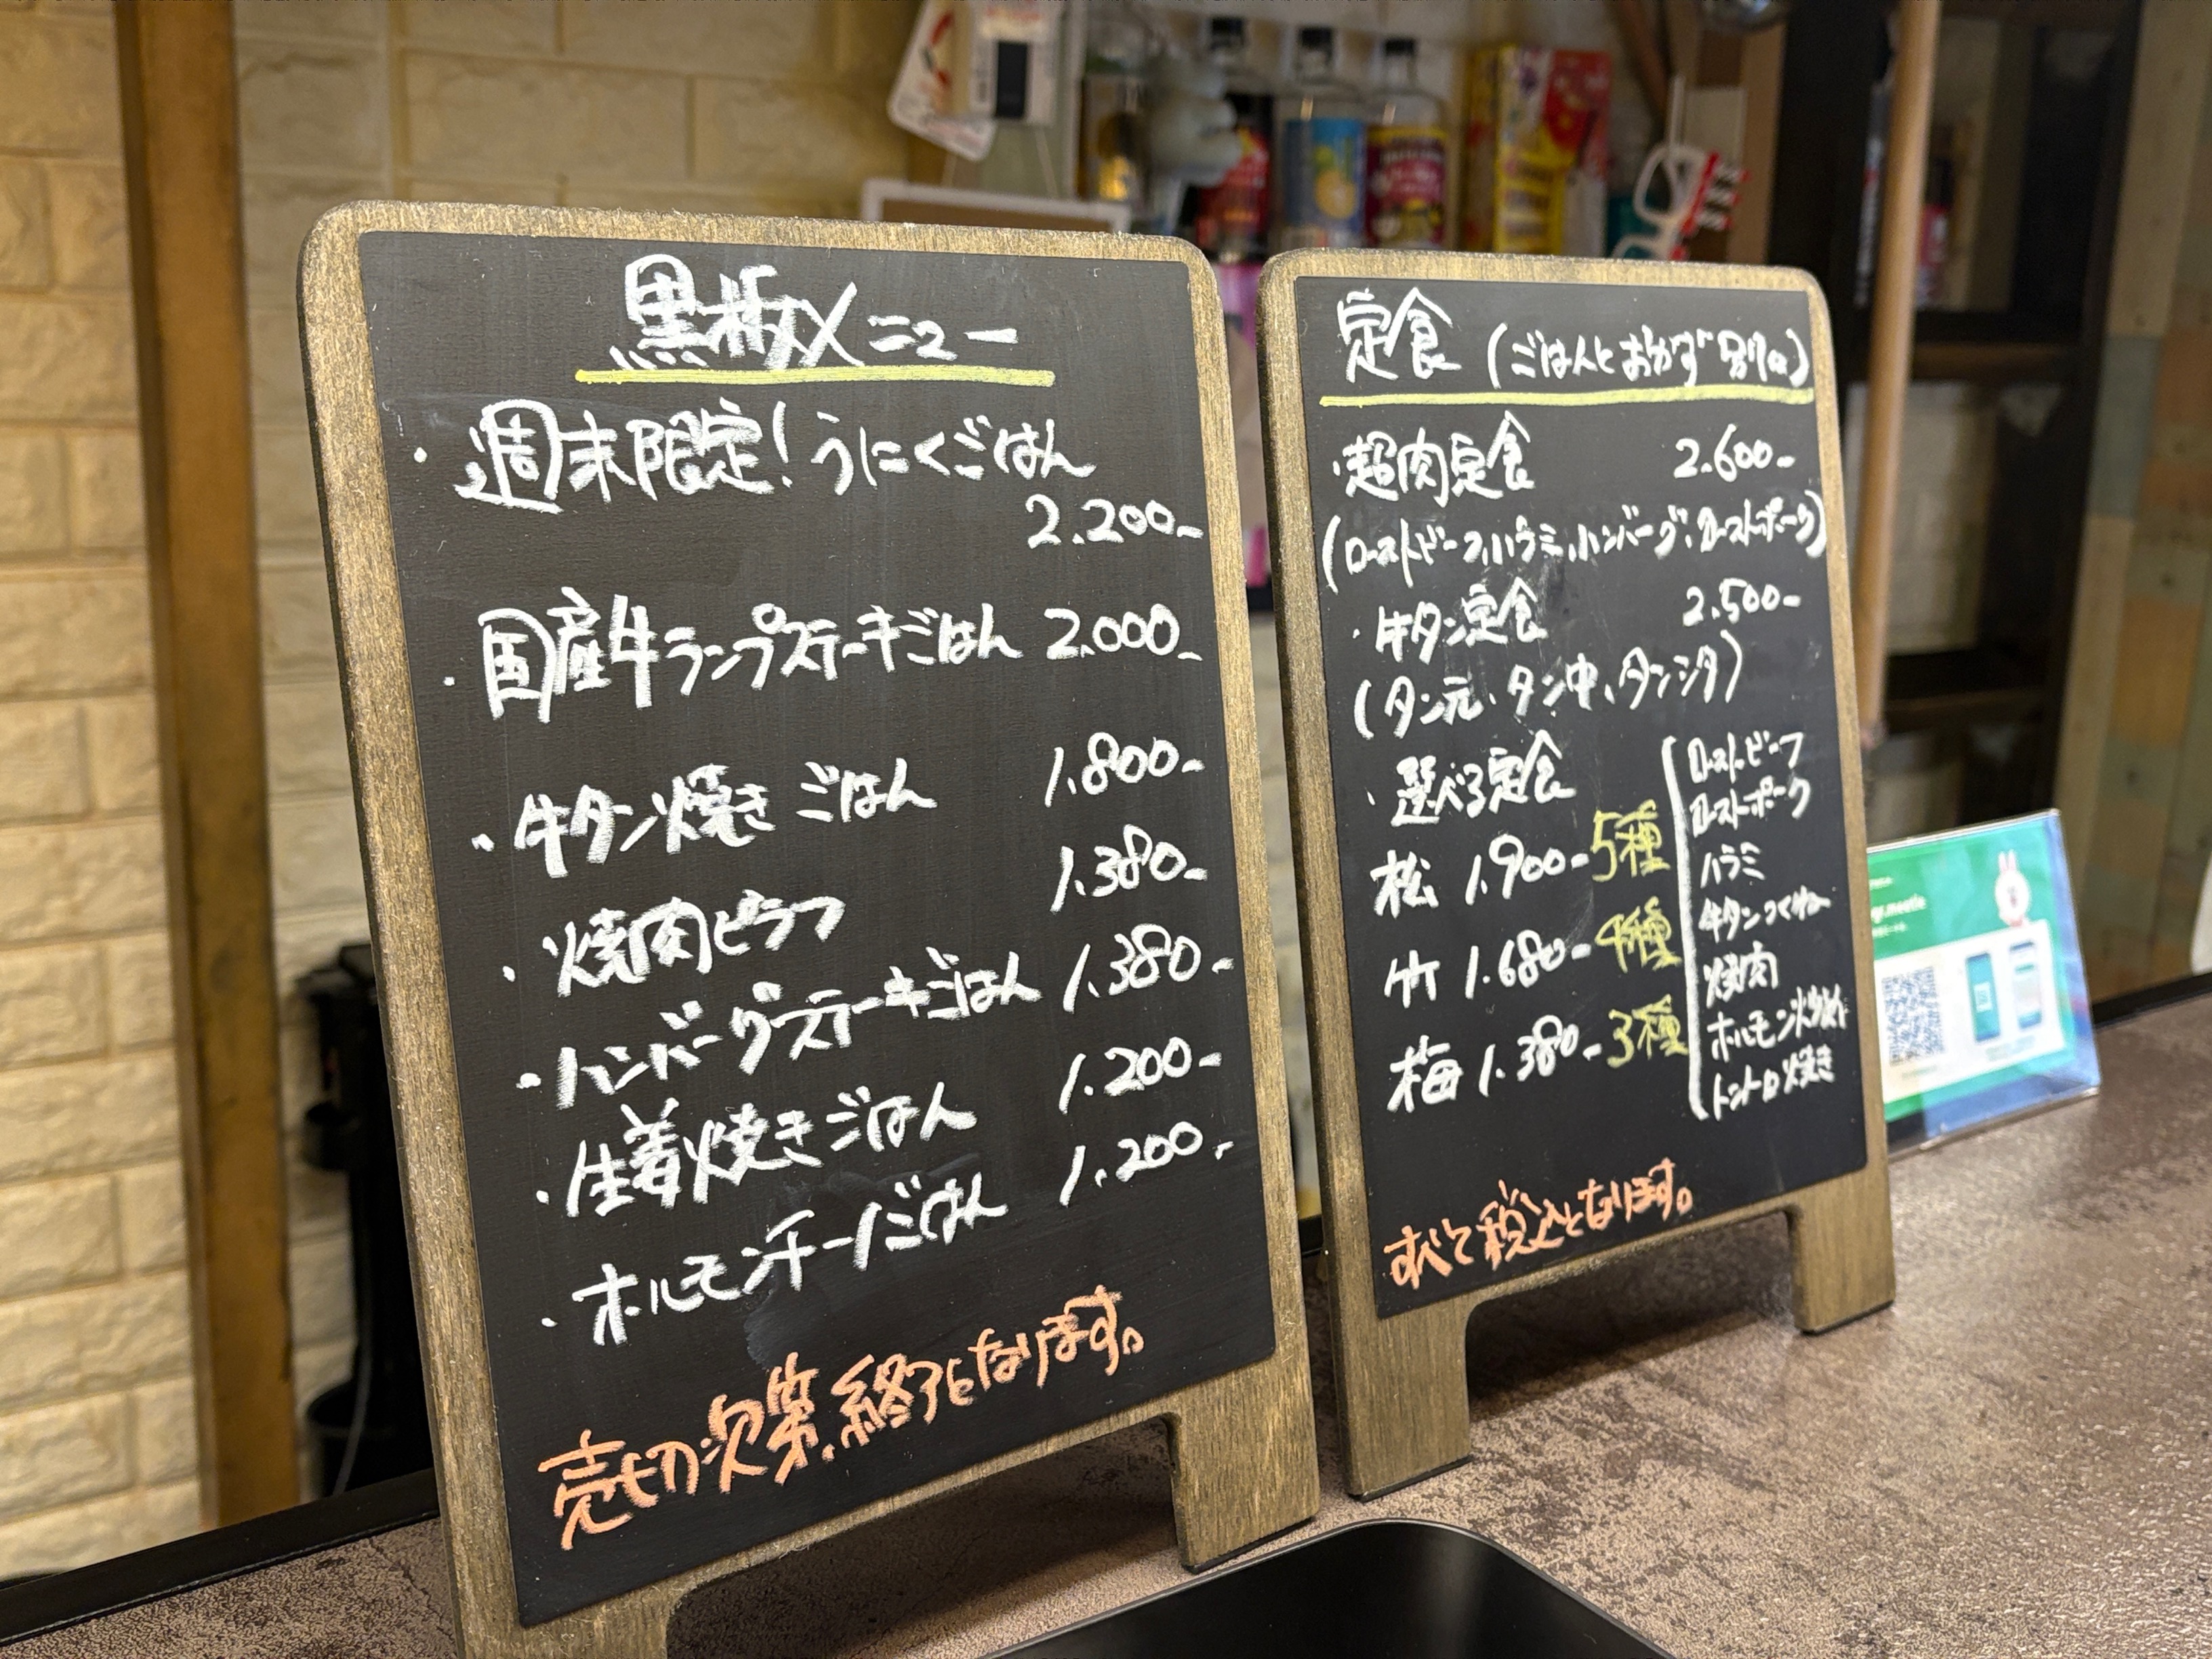 黒板メニュー
・週末限定！うにくごはん
2.200-
・国産牛ランプステーキごはん 2.000-
・牛タン焼きごはん 1.800-
・焼肉ピラフ 1.380-
・ハンバーグステーキごはん 1.380-
・生姜焼きごはん 1.200-
・ホルモンチーノごはん 1.200-
売切次第、終了となります。
定食（ごはんとおかず別皿）
・超肉定食 2.600-
（ローストビーフ、ハラミ、ハンバーグ、ローストポーク）
・牛タン定食 2.500-
（タン元、タン中、タンシタ）
・選べる定食
松 1.900- 5種
竹 1.680- 4種
梅 1.380- 3種
ローストビーフ
ローストポーク
ハラミ
牛タンつくね
焼肉
ホルモン炒め
トントロ焼き
すべて税込となります。